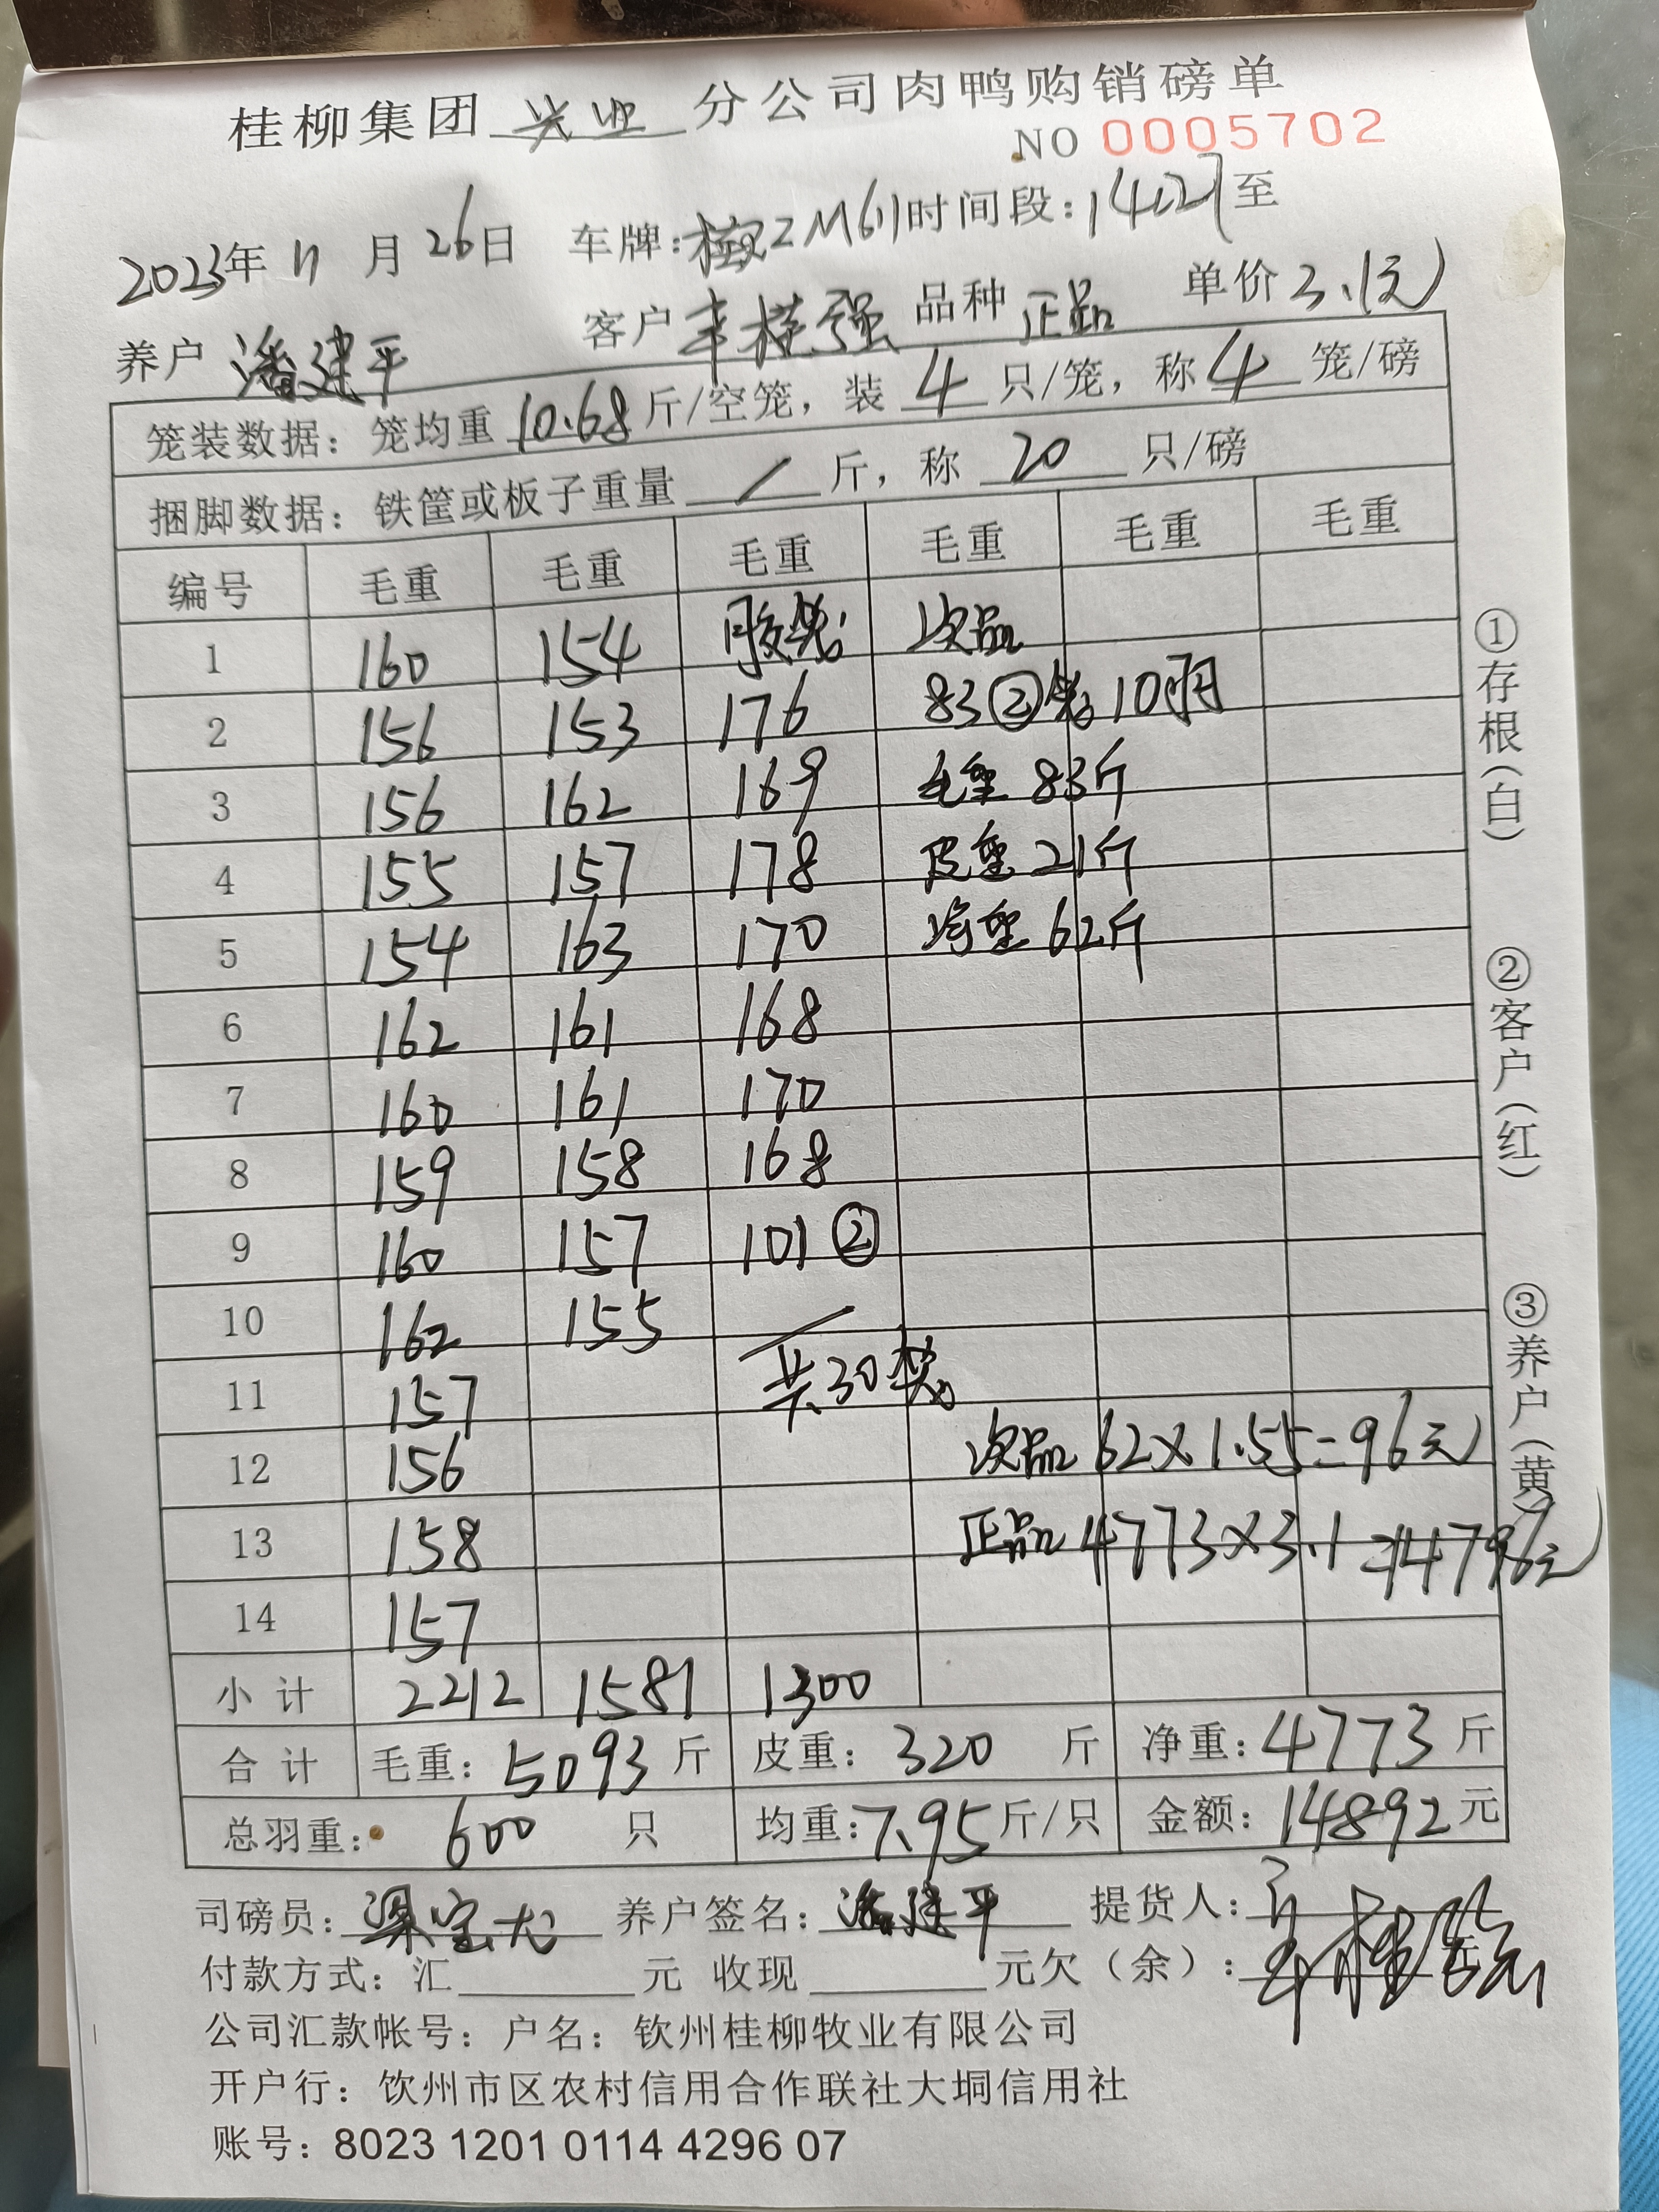 桂柳集团 兴业 分公司肉鸭购销磅单
NO 0005702
2023年 11 月 26日 车牌: 桂 ZM611 时间段: 14:27 至
养户 潘建平 客户 桂强 品种 正品 单价 3.1元
笼装数据: 笼均重 10.68 斤/空笼, 装 4 只/笼, 称 4 笼/磅
捆脚数据: 铁筐或板子重量 / 斤, 称 20 只/磅
编号 毛重 毛重 毛重 毛重 毛重 毛重
1 160 154 胶笼 次品
2 156 153 176 83② 笼 10只
3 156 162 169 毛重 83斤
4 155 157 178 皮重 21斤
5 154 163 170 净重 62斤
6 162 161 168
7 160 161 170
8 159 158 168
9 160 157 101②
10 162 155
11 157 共30笼
12 156 次品 62×1.55=96元
13 158 正品 4773×3.1=14796元
14 157
小计 2212 1581 1300
合计 毛重: 5093 斤 皮重: 320 斤 净重: 4773 斤
总羽重: 600 只 均重: 7.95 斤/只 金额: 14892 元
司磅员: 梁宝尤 养户签名: 潘建平 提货人:
付款方式: 汇 元 收现 元欠(余):
公司汇款帐号: 户名: 钦州桂柳牧业有限公司
开户行: 钦州市区农村信用合作联社大垌信用社
账号: 8023 1201 0114 4296 07
①存根(白)
②客户(红)
③养户(黄)